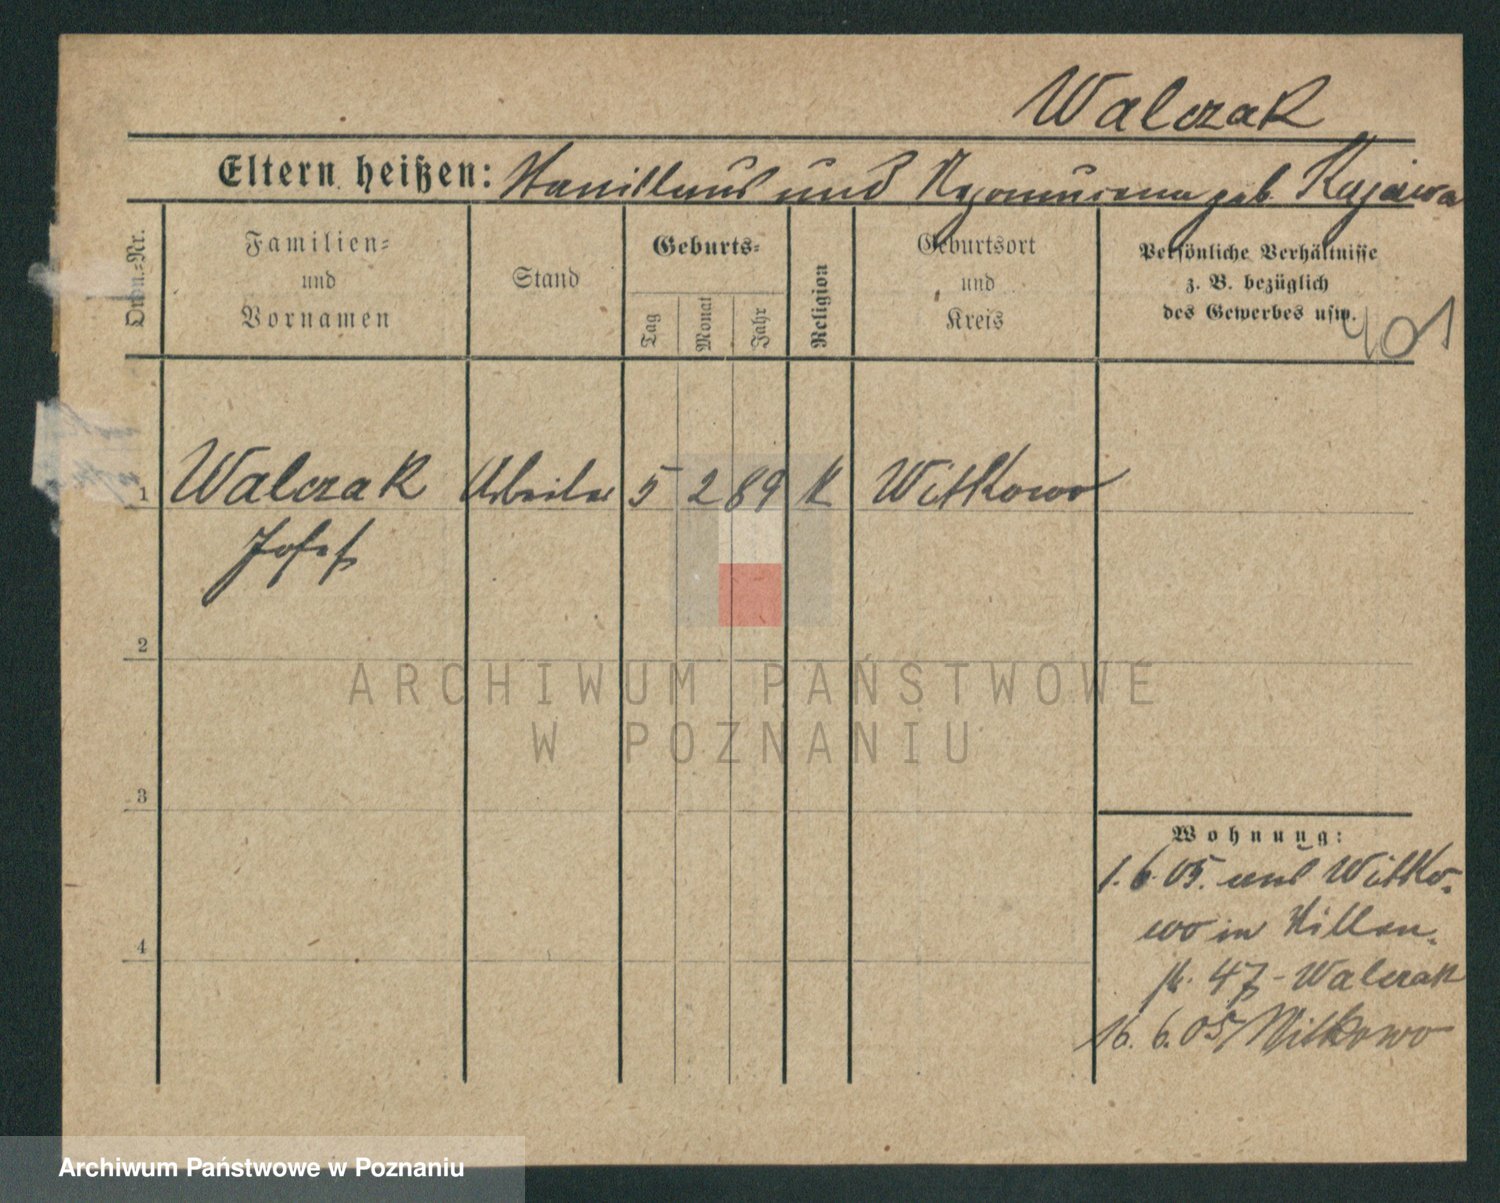 Walczak
Eltern heißen: Stanislaus und geb. Kujawa
Ordn.-Nr.
Familien-
und
Vornamen
Stand
Geburts-
Tag
Monat
Jahr
Religion
Geburtsort
und
Kreis
Persönliche Verhältnisse
z. B. bezüglich
des Gewerbes usw.
401
1 Walczak Arbeiter 5 2 89 K Witkowo
Josef
2
3
4
Wohnung:
1. 6. 05. aus Witko-
wo in
47 - Walczak
16. 6. 05 Witkowo
ARCHIWUM PAŃSTWOWE
W POZNANIU
Archiwum Państwowe w Poznaniu